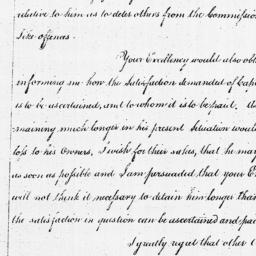 relative to him as to deter others from the Commission
like offences.
Your Excellency would also obl
informing me how the Satisfaction demanded of Cap
is to be ascertained, and to whom it is to be paid.
maining much longer in his present Situation would
loss to his Owners, I wish for their sakes, that he may
as soon as possible and I am persuaded, that your E
will not think it necessary to detain him longer than
the satisfaction in question can be ascertained and paid
I greatly regret that other C